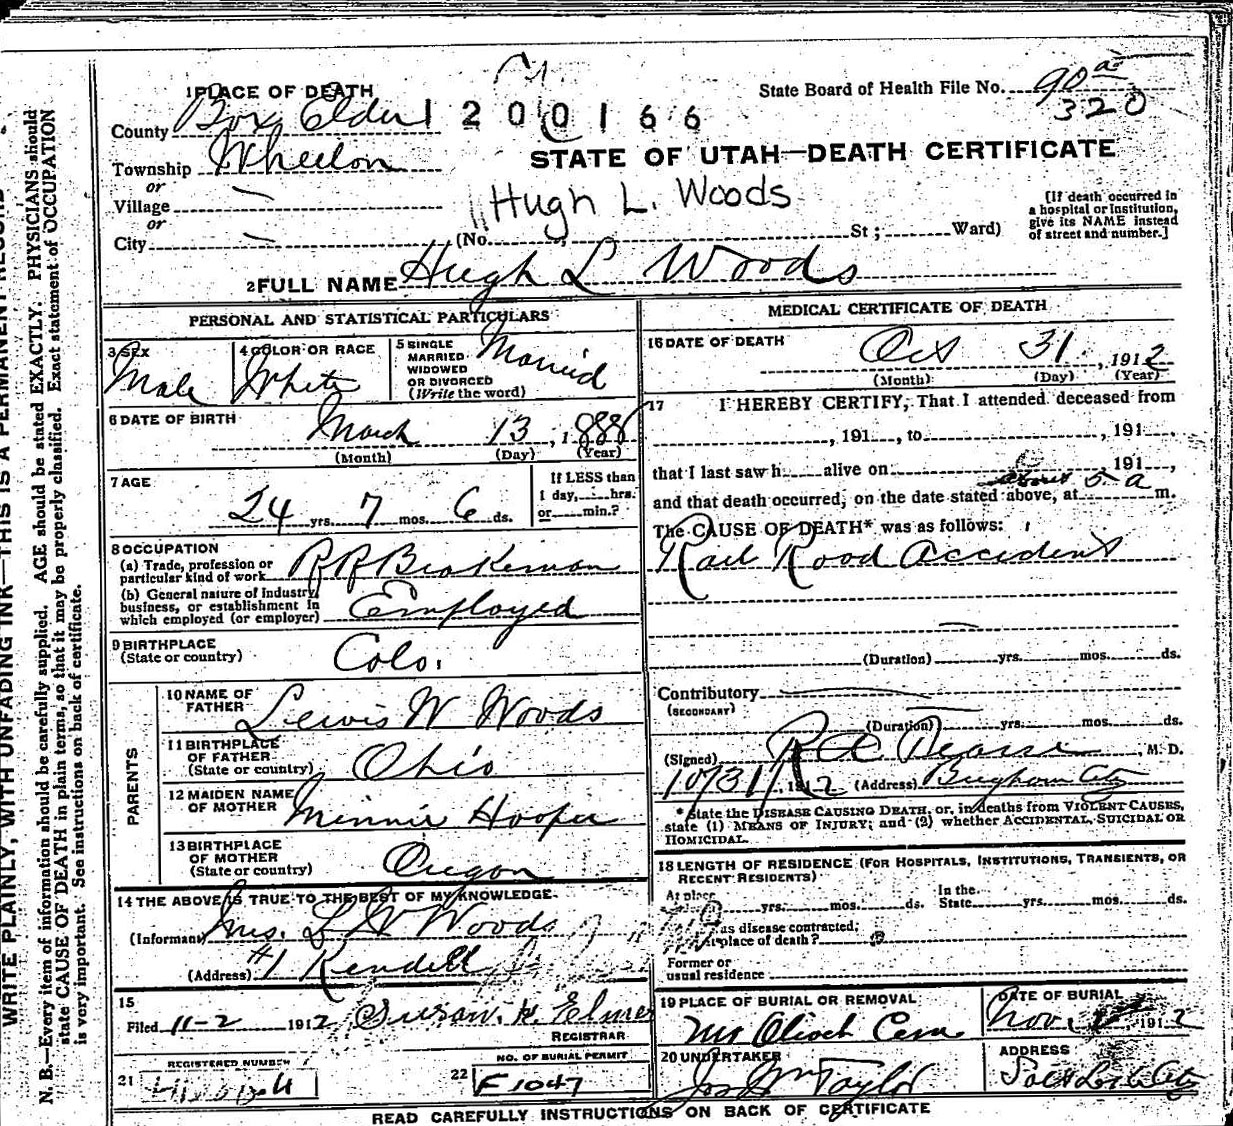 WRITE PLAINLY, WITH UNFADING INK—THIS IS A PERMANENT RECORD
N. B.—Every item of information should be carefully supplied. AGE should be stated EXACTLY. PHYSICIANS should
state CAUSE OF DEATH in plain terms, so that it may be properly classified. Exact statement of OCCUPATION
is very important. See instructions on back of certificate.
1 PLACE OF DEATH
State Board of Health File No. 90 a
320
County Box Elder 1200166
Township Wheelon
STATE OF UTAH—DEATH CERTIFICATE
or
Village
Hugh L. Woods
or
City (No. St; Ward)
[If death occurred in
a hospital or institution,
give its NAME instead
of street and number.]
2 FULL NAME Hugh L Woods
PERSONAL AND STATISTICAL PARTICULARS
3 SEX
Male
4 COLOR OR RACE
White
5 SINGLE
MARRIED
WIDOWED
OR DIVORCED
(Write the word)
Married
6 DATE OF BIRTH
March 13, 1888
(Month) (Day) (Year)
7 AGE
24 yrs. 7 mos. 6 ds.
If LESS than
1 day, hrs.
or min.?
8 OCCUPATION
(a) Trade, profession or
particular kind of work RR Brakeman
(b) General nature of Industry,
business, or establishment in
which employed (or employer) Employed
9 BIRTHPLACE
(State or country) Colo.
PARENTS
10 NAME OF
FATHER
Lewis W Woods
11 BIRTHPLACE
OF FATHER
(State or country) Ohio
12 MAIDEN NAME
OF MOTHER Minnie Hooper
13 BIRTHPLACE
OF MOTHER
(State or country) Oregon
14 THE ABOVE IS TRUE TO THE BEST OF MY KNOWLEDGE.
(Informant) Mrs. L W Woods
(Address) #1 Kendell
15
Filed 11-2 1912 Susan. H. Elmer
REGISTRAR
REGISTERED NUMBER
21
NO. OF BURIAL PERMIT
22 F 1047
MEDICAL CERTIFICATE OF DEATH
16 DATE OF DEATH
Oct 31, 1912
(Month) (Day) (Year)
17 I HEREBY CERTIFY, That I attended deceased from
, 191 , to , 191 ,
that I last saw h alive on 191 ,
and that death occurred, on the date stated above, at about 5 a m.
The CAUSE OF DEATH* was as follows:
Rail Road Accident
(Duration) yrs. mos. ds.
Contributory
(SECONDARY)
(Duration) yrs. mos. ds.
(Signed) R A Pearse M. D.
10/31/1912 (Address) Brigham City
* State the DISEASE CAUSING DEATH, or, in deaths from VIOLENT CAUSES,
state (1) MEANS OF INJURY; and (2) whether ACCIDENTAL, SUICIDAL OR
HOMICIDAL.
18 LENGTH OF RESIDENCE (FOR HOSPITALS, INSTITUTIONS, TRANSIENTS, OR
RECENT RESIDENTS)
At place
yrs. mos. ds.
In the
State yrs. mos. ds.
was disease contracted,
at place of death?
Former or
usual residence
19 PLACE OF BURIAL OR REMOVAL
Mt Olivet Cem
DATE OF BURIAL
Nov. 1912
20 UNDERTAKER
Jos Wm Taylor
ADDRESS
Salt Lake City
READ CAREFULLY INSTRUCTIONS ON BACK OF CERTIFICATE